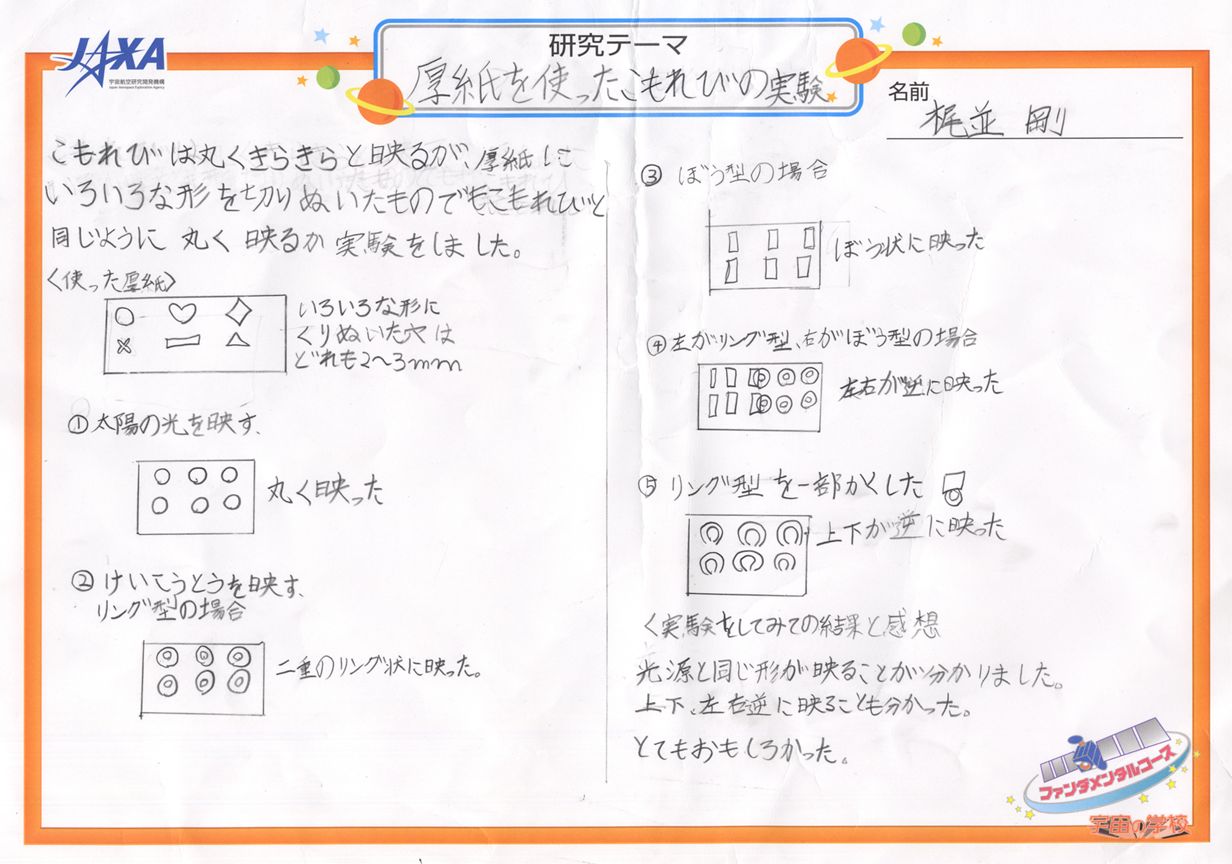 JAXA
宇宙航空研究開発機構
Japan Aerospace Exploration Agency
研究テーマ
厚紙を使ったこもれびの実験
名前
梶並 剛
こもれびは丸くきらきらと映るが、厚紙に
いろいろな形を切りぬいたものでもこもれびと
同じように 丸く 映るか 実験をしました。
〈使った厚紙〉
いろいろな形に
くりぬいた穴は
どれも2〜3mm
①太陽の光を映す、
丸く映った
②けいこうとうを映す、
リング型の場合
二重のリング状に映った。
③ ぼう型の場合
ぼう状に映った
④左がリング型、右がぼう型の場合
左右が逆に映った
⑤ リング型を一部かくした
上下が逆に映った
〈実験をしてみての結果と感想
光源と同じ形が映ることが分かりました。
上下、左右逆に映ることも分かった。
とてもおもしろかった。
ファンダメンタルコース
宇宙の学校